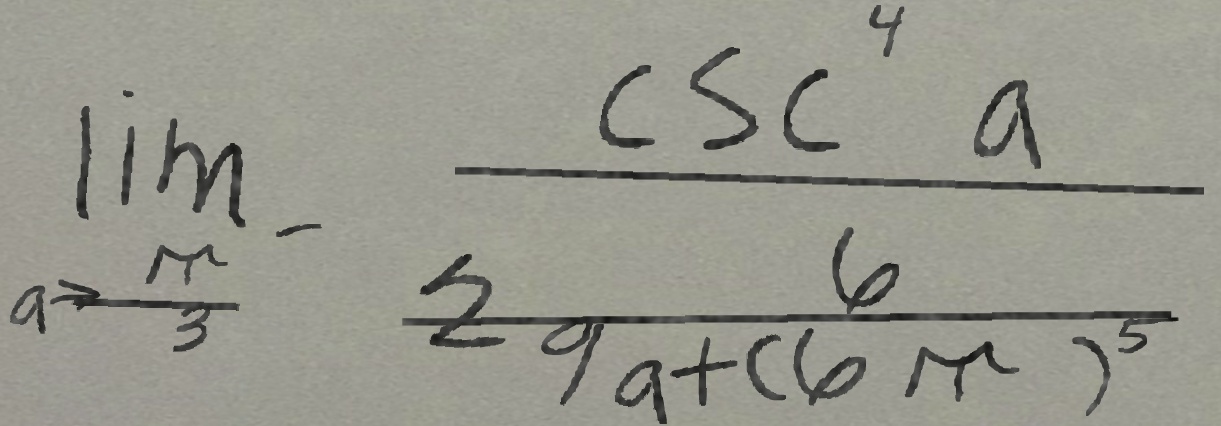 \lim_{a \to \frac{\pi}{3}^-} \frac{\csc^4 a}{2 \frac{6}{9a + (6\pi)^5}}